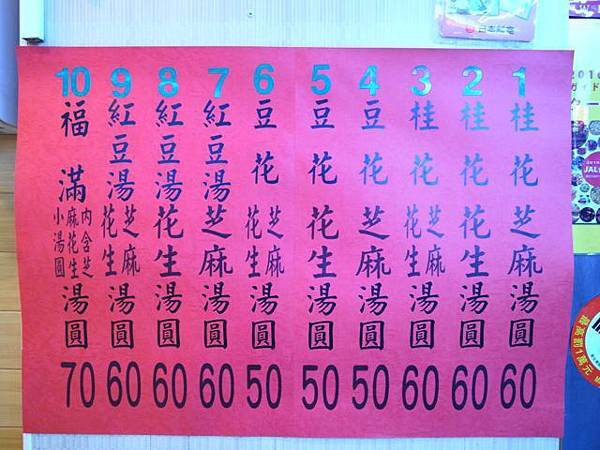 1 桂花芝麻湯圓 60
2 桂花花生湯圓 60
3 桂花芝麻花生湯圓 60
4 豆花芝麻湯圓 50
5 豆花花生湯圓 50
6 豆花芝麻花生湯圓 50
7 紅豆湯芝麻湯圓 60
8 紅豆湯花生湯圓 60
9 紅豆湯芝麻花生湯圓 60
10 福滿內含芝麻花生小湯圓湯圓 70